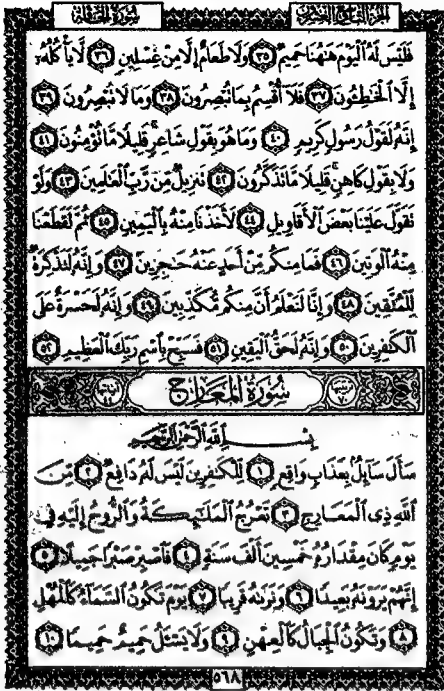 الجزء التاسع والعشرون
سورة الحاقة
فَلَيْسَ لَهُ الْيَوْمَ هَٰهُنَا حَمِيمٌ ٣٥ وَلَا طَعَامٌ إِلَّا مِنْ غِسْلِينٍ ٣٦ لَا يَأْكُلُهُ
إِلَّا الْخَاطِئُونَ ٣٧ فَلَا أُقْسِمُ بِمَا تُبْصِرُونَ ٣٨ وَمَا لَا تُبْصِرُونَ ٣٩
إِنَّهُ لَقَوْلُ رَسُولٍ كَرِيمٍ ٤٠ وَمَا هُوَ بِقَوْلِ شَاعِرٍ قَلِيلًا مَّا تُؤْمِنُونَ ٤١
وَلَا بِقَوْلِ كَاهِنٍ قَلِيلًا مَّا تَذَكَّرُونَ ٤٢ تَنزِيلٌ مِّن رَّبِّ الْعَالَمِينَ ٤٣ وَلَوْ
تَقَوَّلَ عَلَيْنَا بَعْضَ الْأَقَاوِيلِ ٤٤ لَأَخَذْنَا مِنْهُ بِالْيَمِينِ ٤٥ ثُمَّ لَقَطَعْنَا
مِنْهُ الْوَتِينَ ٤٦ فَمَا مِنكُم مِّنْ أَحَدٍ عَنْهُ حَاجِزِينَ ٤٧ وَإِنَّهُ لَتَذْكِرَةٌ
لِّلْمُتَّقِينَ ٤٨ وَإِنَّا لَنَعْلَمُ أَنَّ مِنكُم مُّكَذِّبِينَ ٤٩ وَإِنَّهُ لَحَسْرَةٌ عَلَى
الْكَافِرِينَ ٥٠ وَإِنَّهُ لَحَقُّ الْيَقِينِ ٥١ فَسَبِّحْ بِاسْمِ رَبِّكَ الْعَظِيمِ ٥٢
سورة المعارج
بِسْمِ اللَّهِ الرَّحْمَٰنِ الرَّحِيمِ
سَأَلَ سَائِلٌ بِعَذَابٍ وَاقِعٍ ١ لِّلْكَافِرِينَ لَيْسَ لَهُ دَافِعٌ ٢ مِّنَ
اللَّهِ ذِي الْمَعَارِجِ ٣ تَعْرُجُ الْمَلَائِكَةُ وَالرُّوحُ إِلَيْهِ فِي
يَوْمٍ كَانَ مِقْدَارُهُ خَمْسِينَ أَلْفَ سَنَةٍ ٤ فَاصْبِرْ صَبْرًا جَمِيلًا ٥
إِنَّهُمْ يَرَوْنَهُ بَعِيدًا ٦ وَنَرَاهُ قَرِيبًا ٧ يَوْمَ تَكُونُ السَّمَاءُ كَالْمُهْلِ
٨ وَتَكُونُ الْجِبَالُ كَالْعِهْنِ ٩ وَلَا يَسْأَلُ حَمِيمٌ حَمِيمًا ١٠
٥٦٨